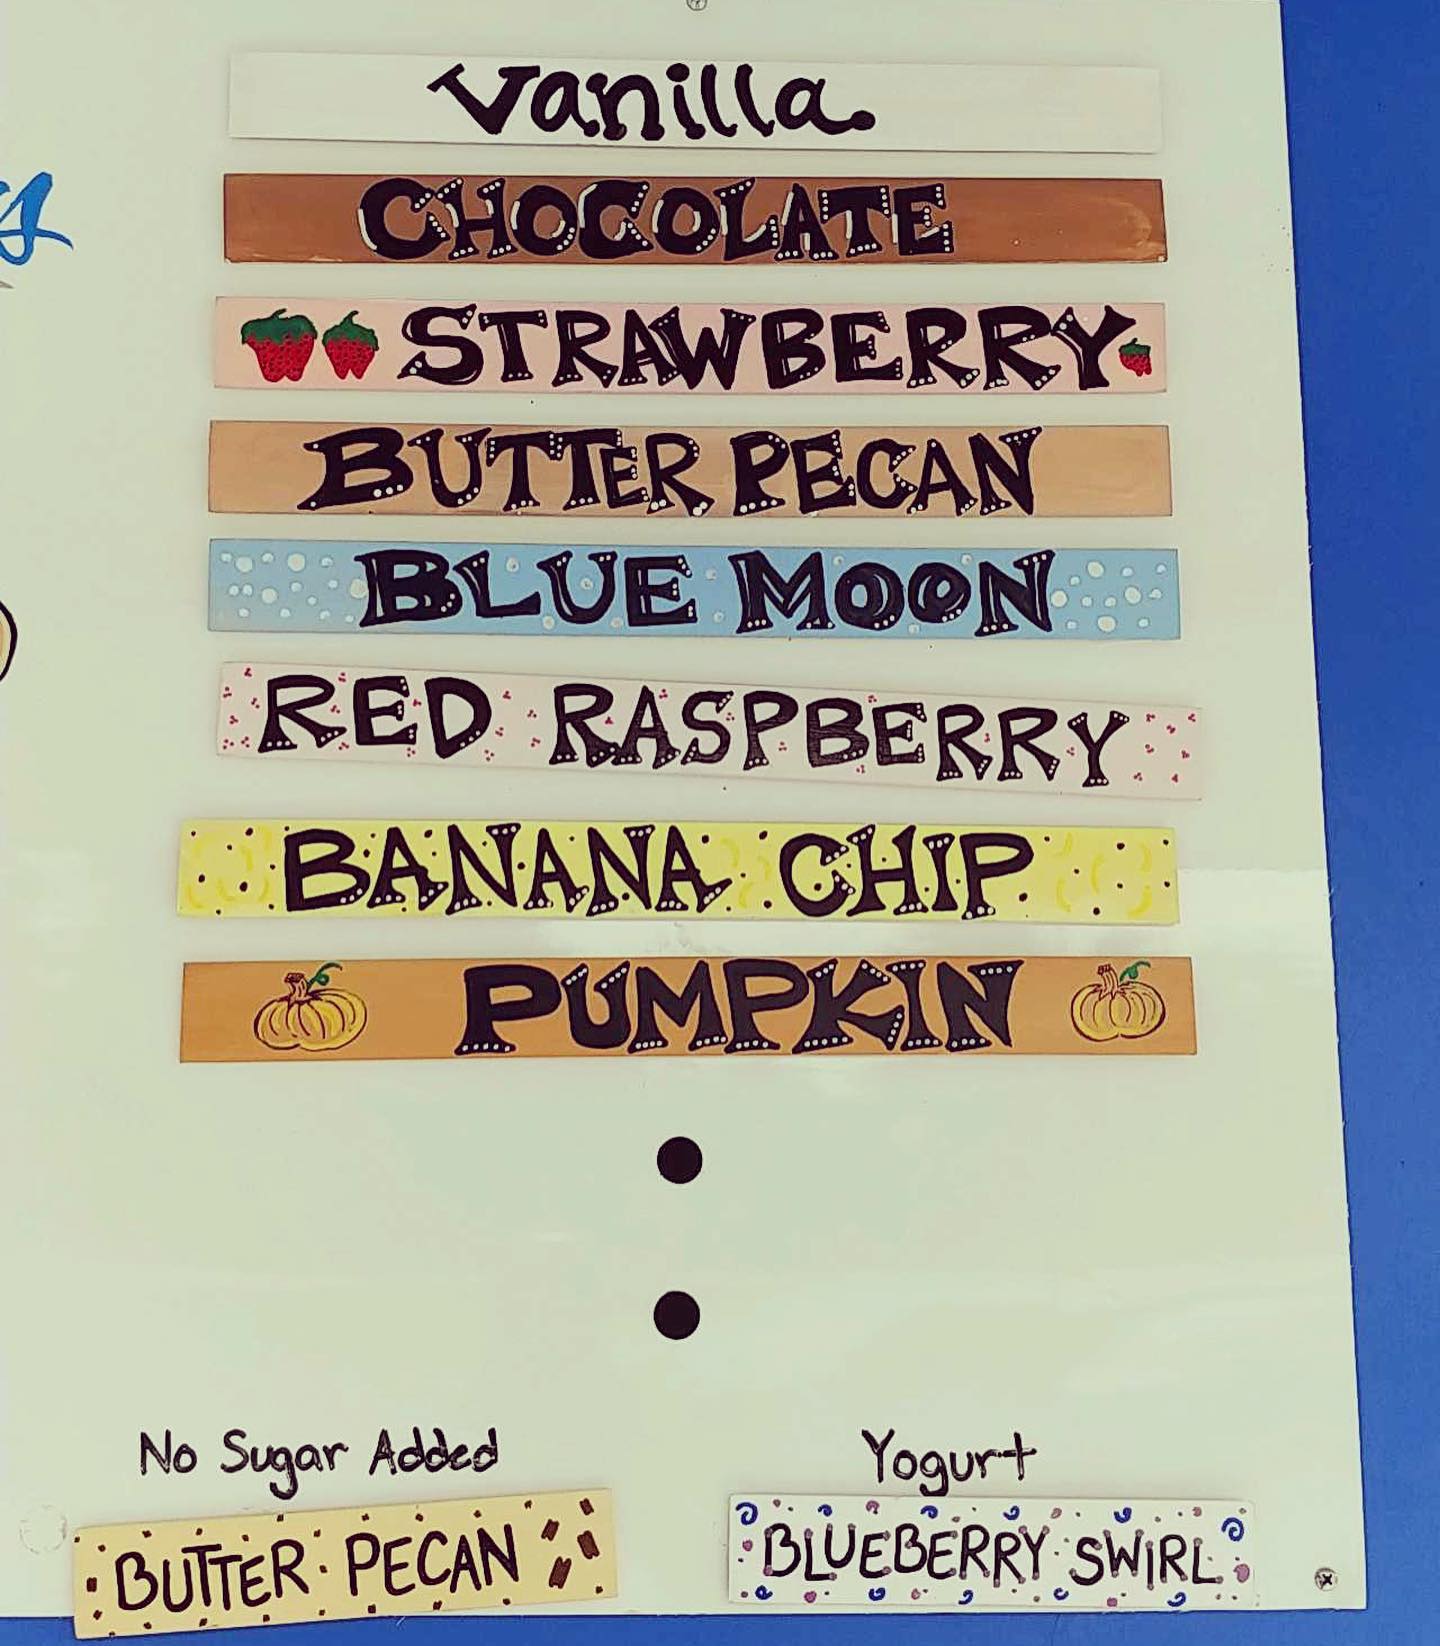 Vanilla
CHOCOLATE
STRAWBERRY
BUTTER PECAN
BLUE MOON
RED RASPBERRY
BANANA CHIP
PUMPKIN
No Sugar Added
BUTTER PECAN
Yogurt
BLUEBERRY SWIRL